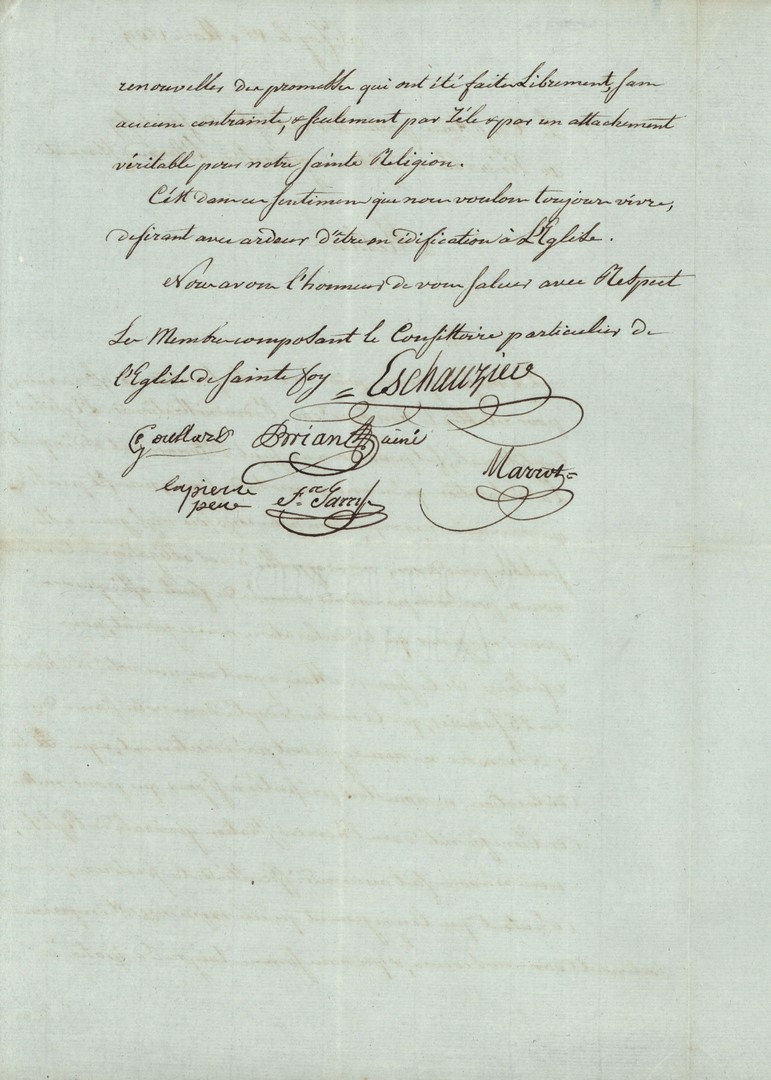 renouvelles des promesses qui ont été faites Librement, sans
aucune contrainte, & seulement par Zéle & par un attachement
véritable pour notre Sainte Religion.
C'est dans ces sentimens que nous voulons toujours vivre,
desirant avec ardeur d'être en édification à L'Eglise.
Nous avons l'honneur de vous saluer avec Respect
Les Membres composant le Consistoire particulier de
l'Eglise de Sainte foy = Eschauzier
Goullard Brian ainé
Marrot =
lapierre
pere